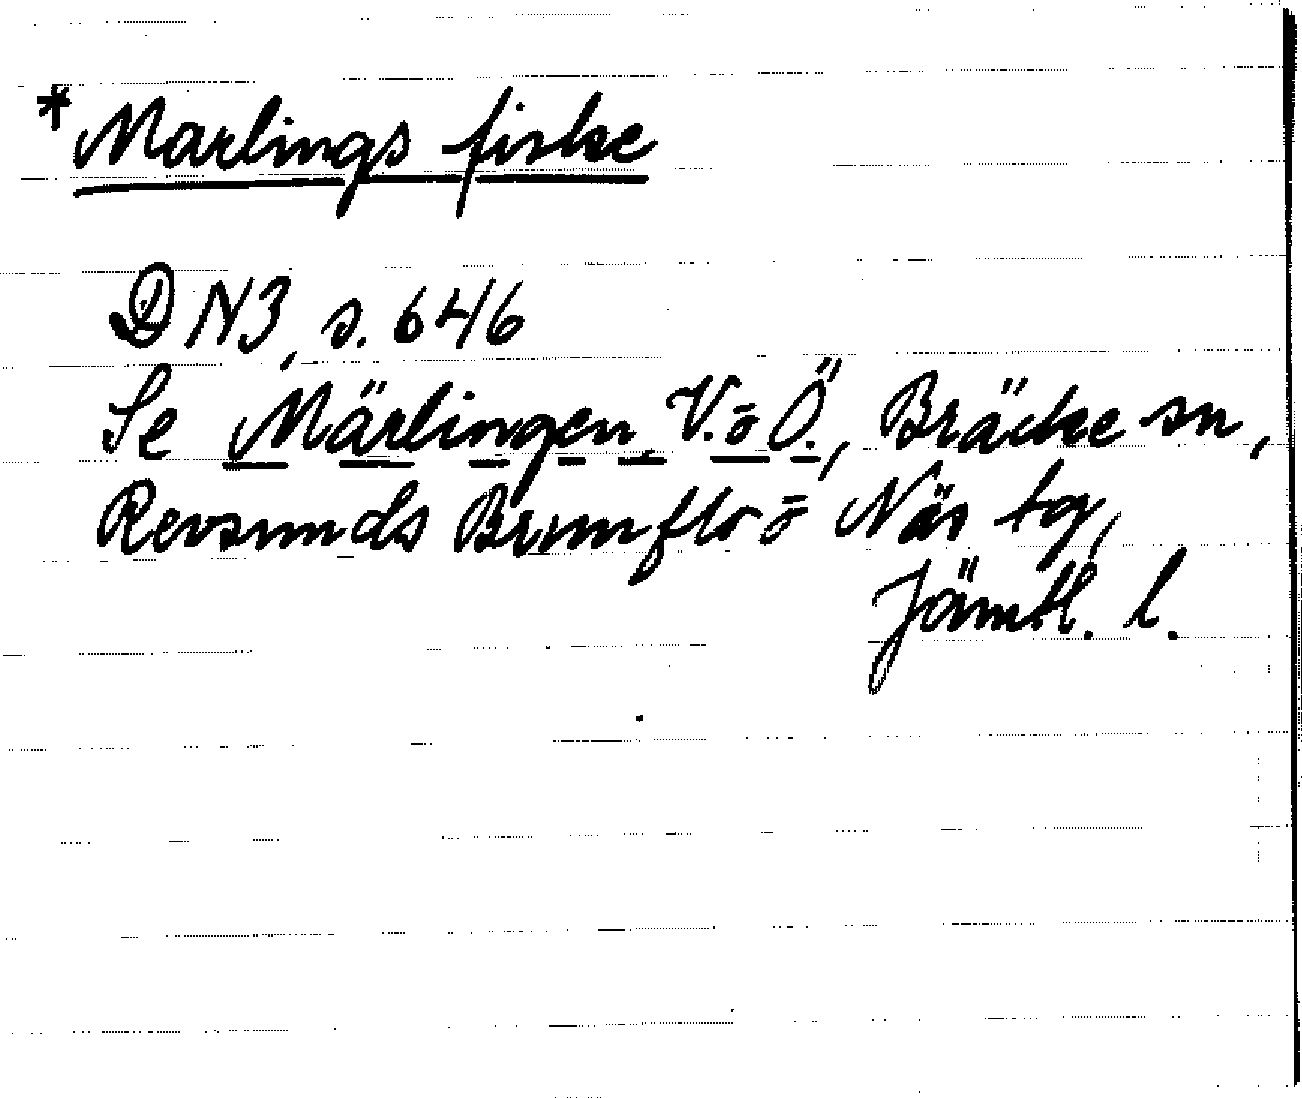 *Marlings fiske
DN3, s. 646
Se Märlingen, V. o Ö., Bräcke sn,
Revsunds Brunflo o Näs tg,
Jämtl. l.